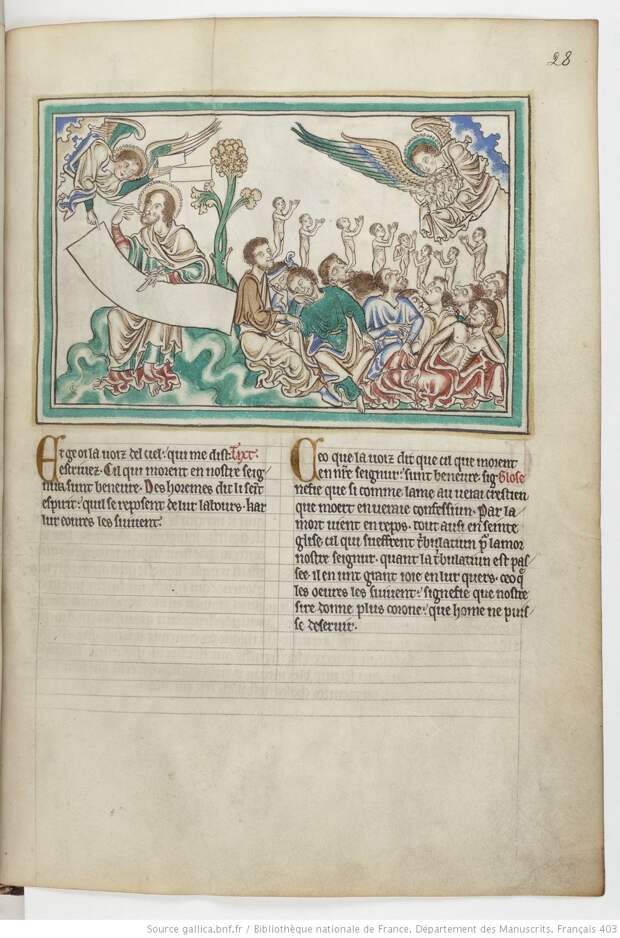 28
Et ge oi la uoiz del ciel: qui me dist: Tixt
escriuez. Cil qui moient en nostre seig
nur sunt beneure. Des horemes dit li seit
espirit: quil se reposent de lur labours. kar
lur eoures les siuent.
Ceo que la uoiz dit que cil que moient
en nre seignur: sunt beneure. sig Glose
nefie que si comme lame au uerai crestien
que moert en ueraie confessiun. Par la
mort uient en repos. tout ausi en seinte
glise cil qui sueffrent tribulatiun p lamor
nostre seignur. quant la tribulatiun est pas
see. il en unt grant ioie en lur quers. ceo q
les oeures les siuent: signefie que nostre
sire donne plus corone: que home ne puis
se deseruir.
Source gallica.bnf.fr / Bibliothèque nationale de France. Département des Manuscrits. Français 403